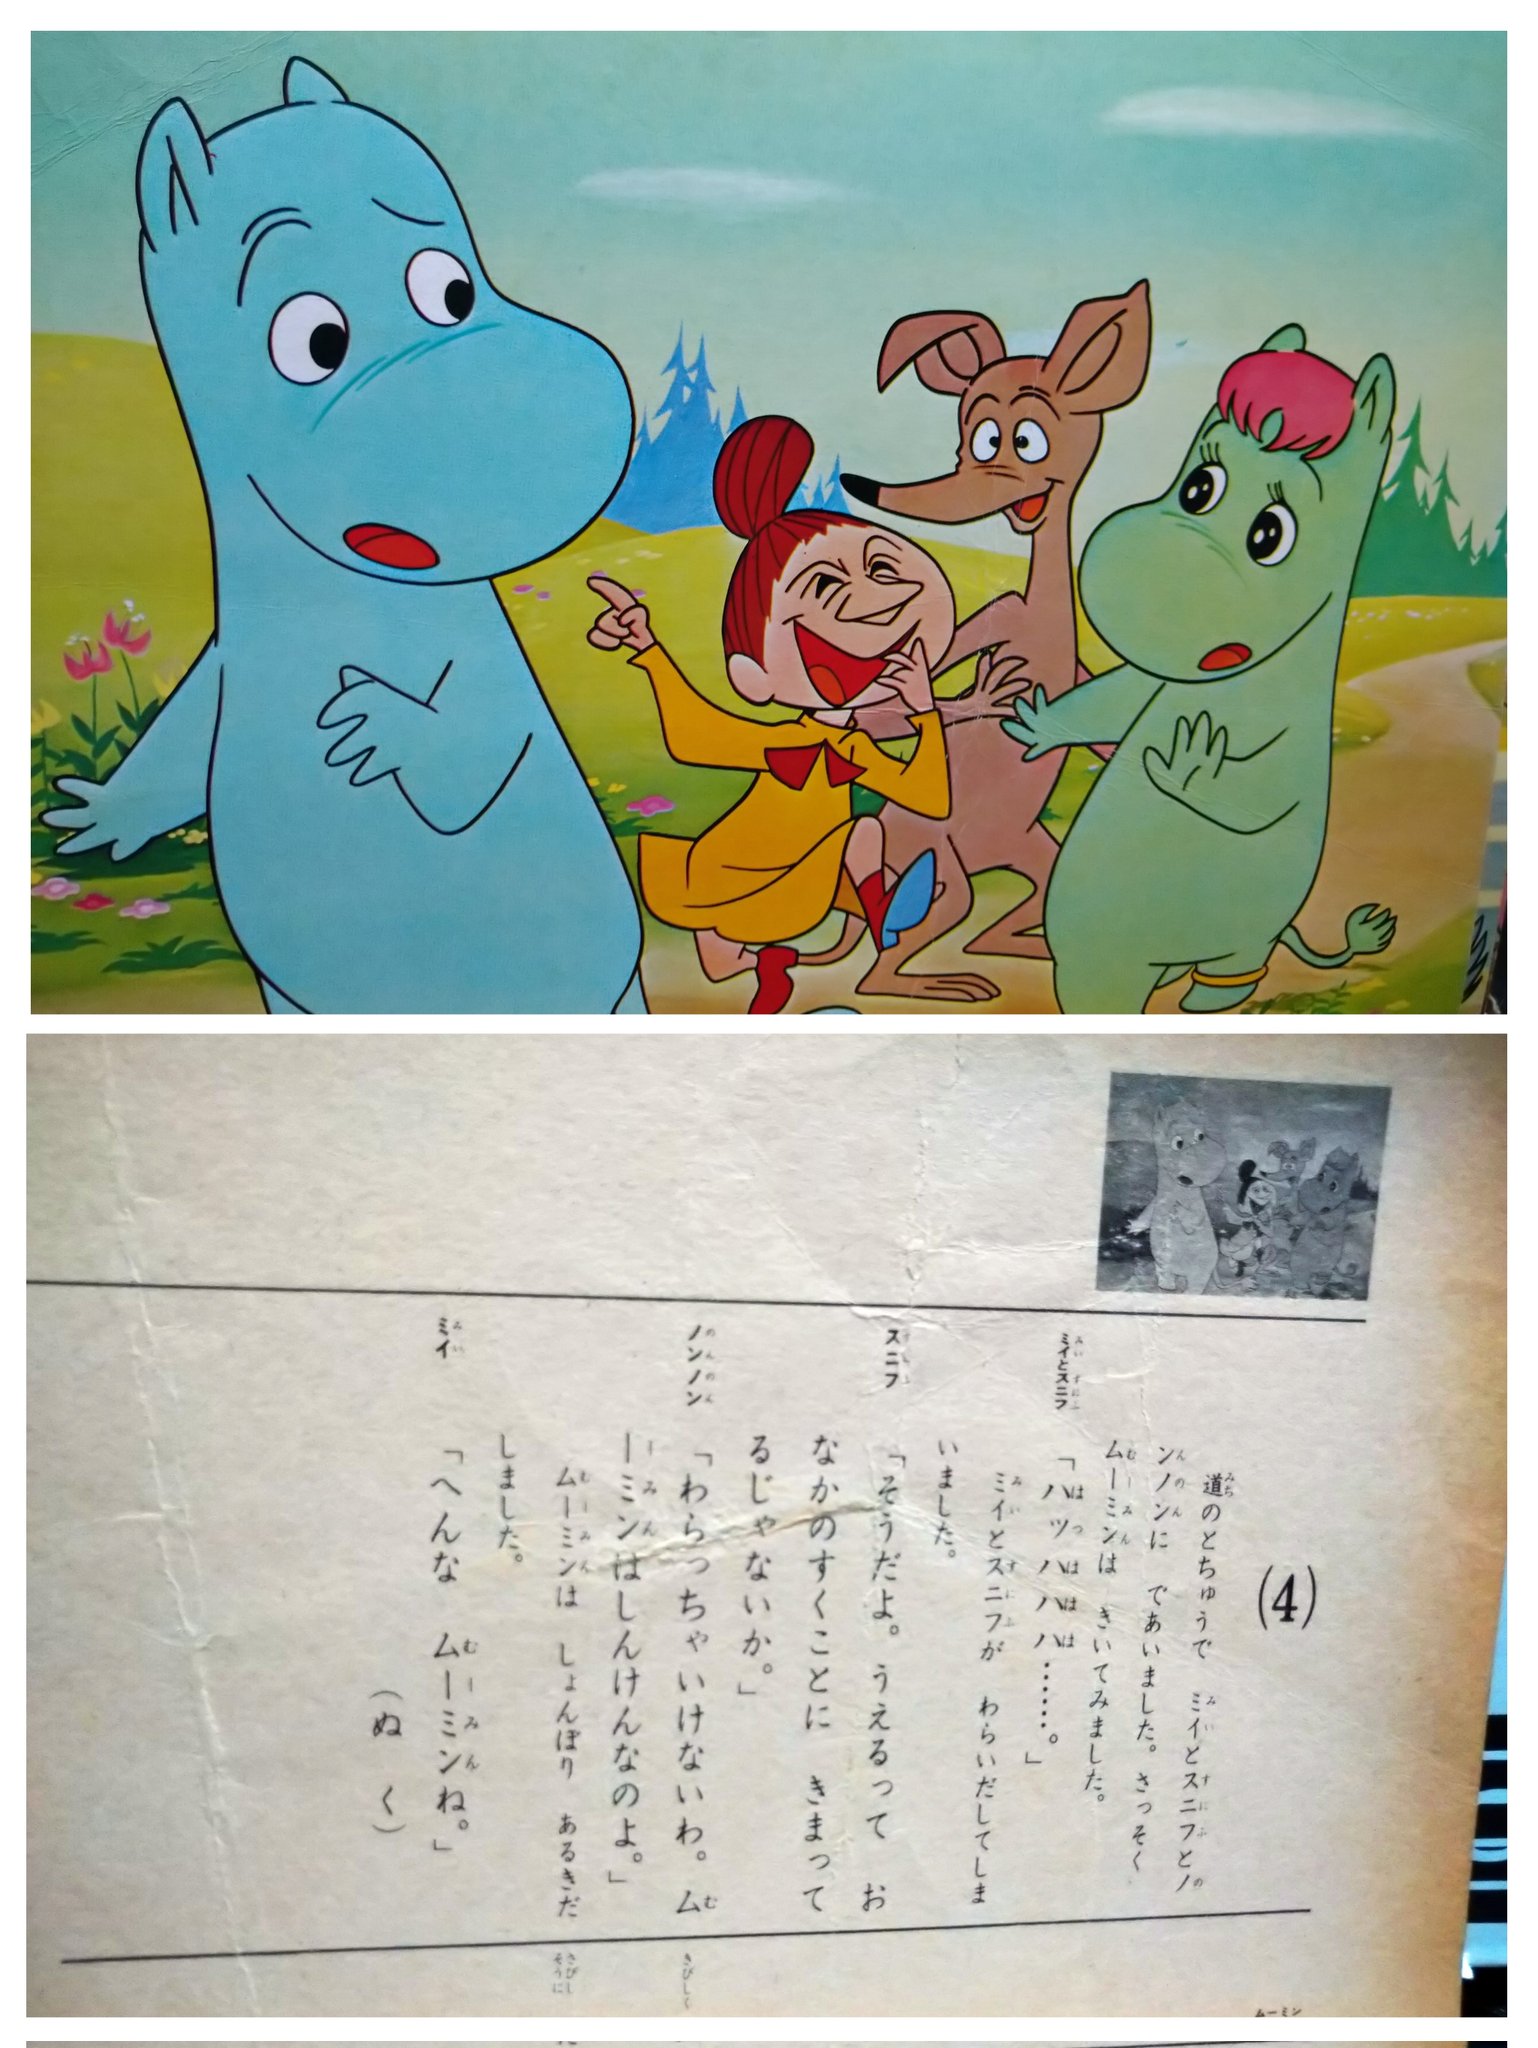 (4)
道のとちゅうで ミイとスニフとノ
ンノンに であいました。さっそく
ムーミンは きいてみました。
ミイとスニフ 「ハツハハハ……。」
ミイとスニフが わらいだしてしま
いました。
スニフ 「そうだよ。うえるって お
なかのすくことに きまって
るじゃないか。」
ノンノン 「わらっちゃいけないわ。ム
ーミンはしんけんなのよ。」
ムーミンは しょんぼり あるきだ
しました。
ミイ 「へんな ムーミンね。」
(ぬ く)
ムーミン
きびしく
さびし
そうに